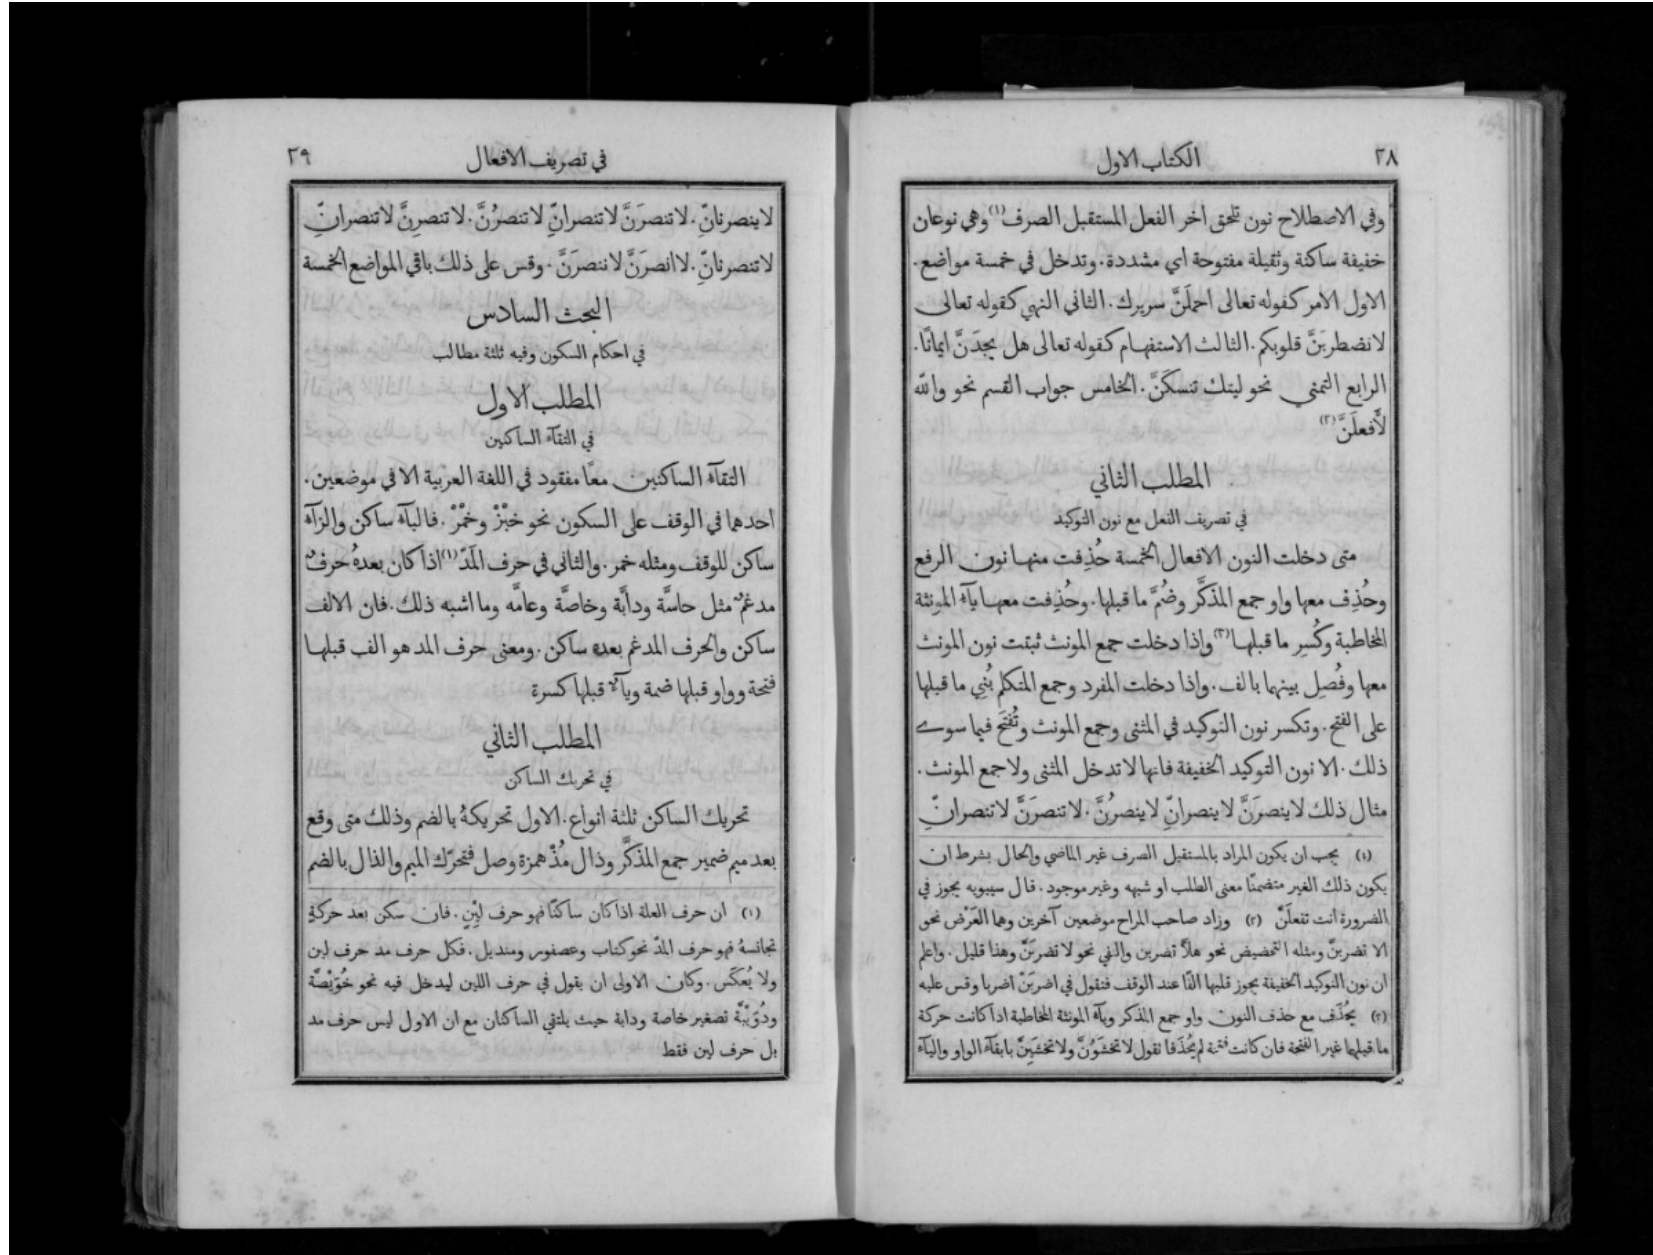 ٢٨
الكتاب الاول
وفي الاصطلاح نون تلحق اخر الفعل المستقبل الصرف(١) وهي نوعان
خفيفة ساكنة وثقيلة مفتوحة اي مشددة. وتدخل في خمسة مواضع.
الاول الامر كقوله تعالى احملَنَّ سريرك. الثاني النهي كقوله تعالى
لا تضطربَنَّ قلوبكم. الثالث الاستفهام كقوله تعالى هل يجدَنَّ ايمانًا.
الرابع التمني نحو ليتك تنسكَنَّ. الخامس جواب القسم نحو والله
لأَفعلَنَّ(٢)
المطلب الثاني
في تصريف الفعل مع نون التوكيد
متى دخلت النون الافعال الخمسة حُذِفت منها نون الرفع
وحُذِف معها واو جمع المذكَّر وضُمَّ ما قبلها. وحُذِفت معها يآء المونثة
المخاطبة وكُسِر ما قبلها(٣) واذا دخلت جمع المونث ثبتت نون المونث
معها وفُصِل بينهما بالف. واذا دخلت المفرد وجمع المتكلم بُنِي ما قبلها
على الفتح. وتكسر نون التوكيد في المثنى وجمع المونث وتُفتَح فيما سوى
ذلك. الا نون التوكيد الخفيفة فانها لا تدخل المثنى ولا جمع المونث.
مثال ذلك لا ينصرَنَّ لا ينصرانِّ لا ينصرُنَّ. لا تنصرَنَّ لا تنصرانِّ
(١) يجب ان يكون المراد بالمستقبل الصرف غير الماضي والحال بشرط ان
يكون ذلك الغير متضمنًا معنى الطلب او شبهه وغير موجود. قال سيبويه يجوز في
الضرورة انت تفعلَنَّ (٢) وزاد صاحب المراح موضعين آخرين وهما العَرْض نحو
الا تضربنَّ ومثله التحضيض نحو هلاَّ تضربن والنفي نحو لا تضربَنَّ وهذا قليل. واعلم
ان نون التوكيد الخفيفة يجوز قلبها الفًا عند الوقف فتقول في اضربَنْ اضربا وقس عليه
(٣) يُحذَف مع حذف النون واو جمع المذكر ويآء المونثة المخاطبة اذا كانت حركة
ما قبلهما غير الفتحة فان كانت فتحة لم يُحذَفا تقول لا تخشَوُنَّ ولا تخشَيِنَّ بابقآء الواو واليآء
في تصريف الافعال
٢٩
لا ينصرنانِّ. لا تنصرَنَّ لا تنصرانِّ لا تنصرُنَّ. لا تنصرِنَّ لا تنصرانِّ
لا تنصرنانِّ. لا انصرَنَّ لا ننصرَنَّ. وقس على ذلك باقي المواضع الخمسة
البحث السادس
في احكام السكون وفيه ثلثة مطالب
المطلب الاول
في التقآء الساكنين
التقآء الساكنين معًا مفقود في اللغة العربية الا في موضعين.
احدهما في الوقف على السكون نحو خبْزْ وخمْرْ. فالبآء ساكن والزآء
ساكن للوقف ومثله خمر. والثاني في حرف المَدّ(١) اذا كان بعدهُ حرفٌ
مدغمٌ مثل حاسَّة ودابَّة وخاصَّة وعامَّه وما اشبه ذلك. فان الالف
ساكن والحرف المدغم بعده ساكن. ومعنى حرف المد هو الف قبلها
فتحة وواو قبلها ضمة ويآءٌ قبلها كسرة
المطلب الثاني
في تحريك الساكن
تحريك الساكن ثلثة انواع. الاول تحريكهُ بالضم وذلك متى وقع
بعد ميم ضمير جمع المذكَّر وذال مُذْ همزة وصل فتحرّك الميم والذال بالضم
(١) ان حرف العلة اذا كان ساكنًا فهو حرف لِيْنٍ. فان سكن بعد حركة
تجانسهُ فهو حرف المدّ نحو كتاب وعصفور ومنديل. فكل حرف مد حرف لين
ولا يُعكَس. وكان الاولى ان يقول في حرف اللين ليدخل فيه نحو خُوَيْصَّة
ودُوَيْبَّة تصغير خاصة ودابة حيث يلتقي الساكنان مع ان الاول ليس حرف مد
بل حرف لين فقط